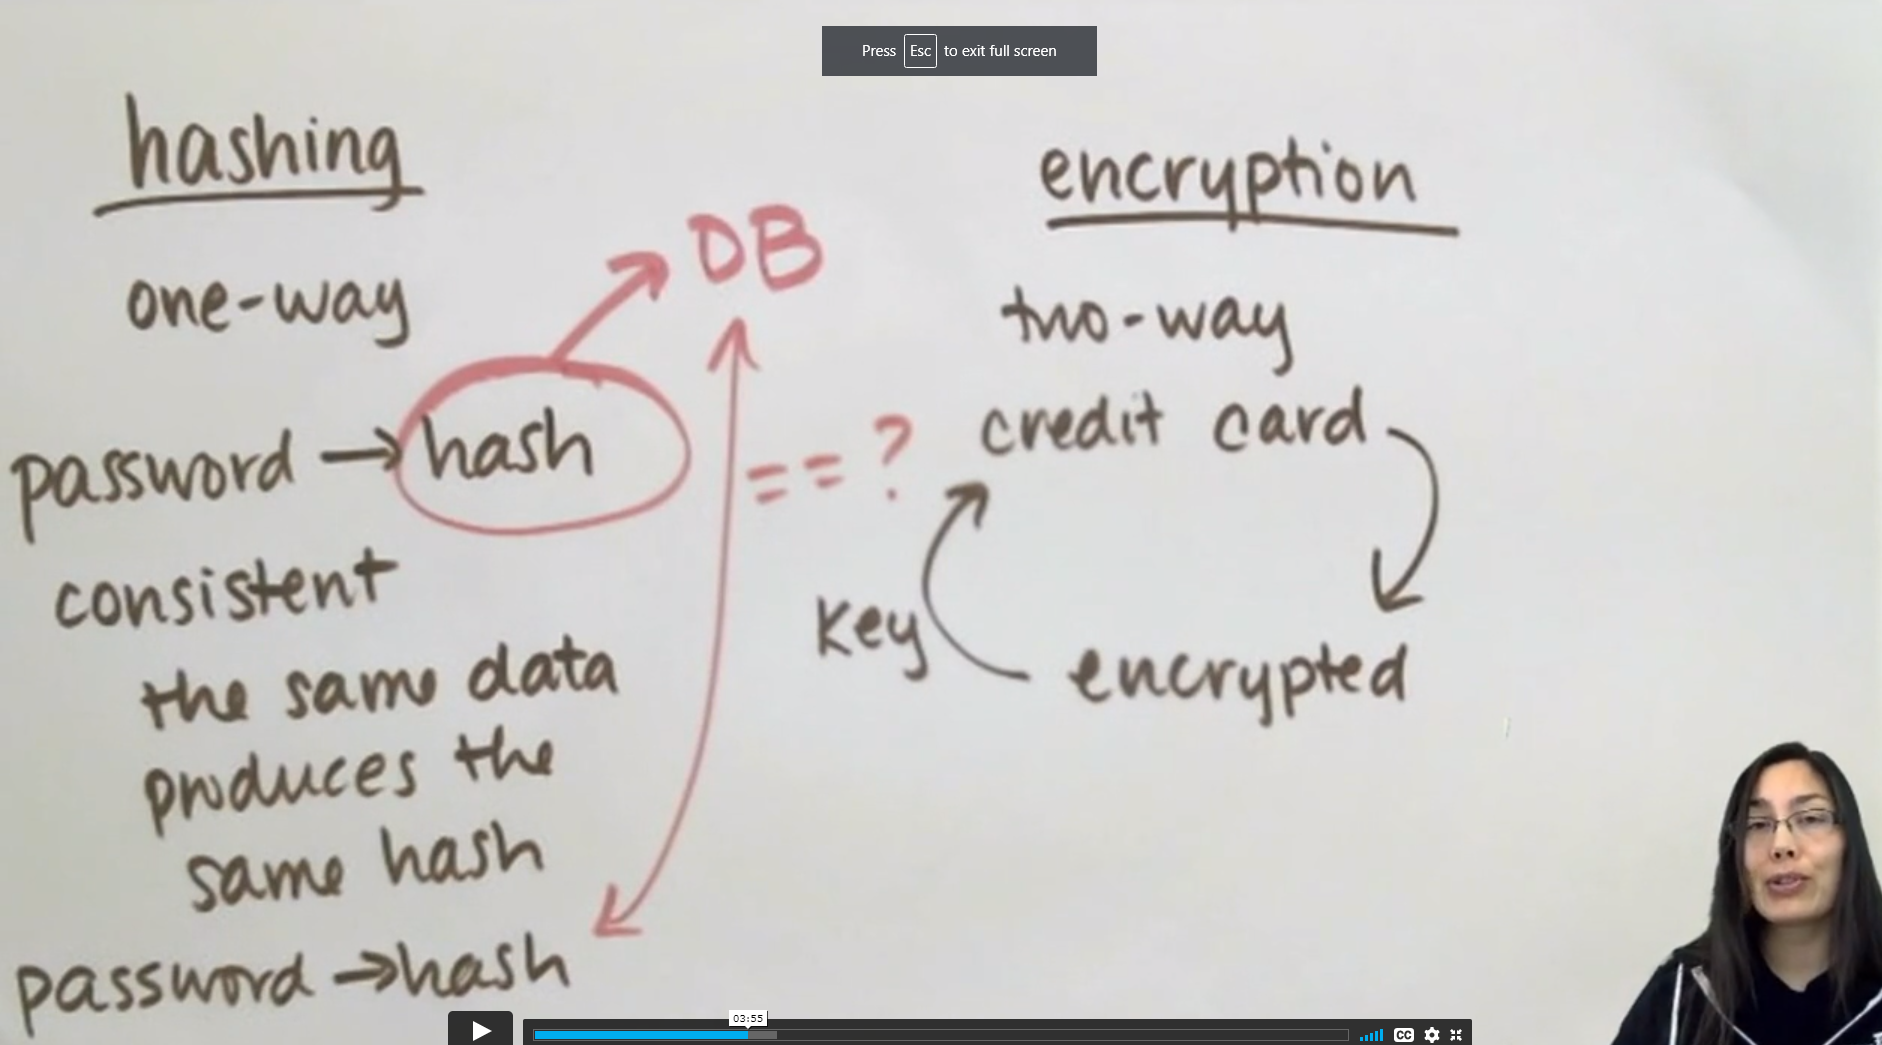 Press Esc to exit full screen
hashing
one-way
DB
password → hash
== ?
consistent
the same data
produces the
same hash
password → hash
encryption
two-way
credit card
key
encrypted
03:55
CC